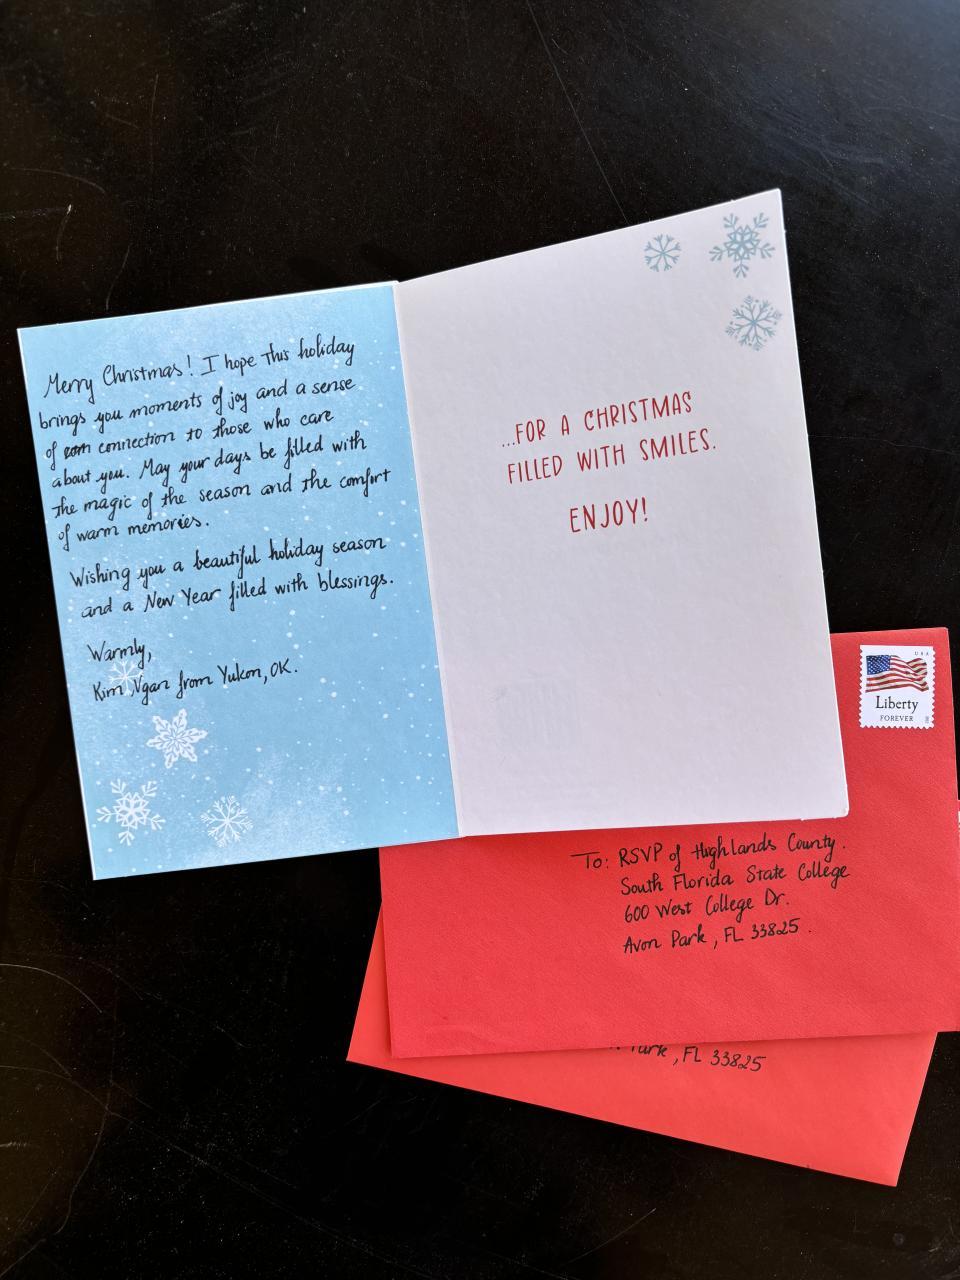 Merry Christmas! I hope this holiday
brings you moments of joy and a sense
of com connection to those who care
about you. May your days be filled with
the magic of the season and the comfort
of warm memories.
Wishing you a beautiful holiday season
and a New Year filled with blessings.
Warmly,
Kim Ngan from Yukon, OK.
...FOR A CHRISTMAS
FILLED WITH SMILES.
ENJOY!
USA
Liberty
FOREVER
To: RSVP of Highlands County.
South Florida State College
600 West College Dr.
Avon Park, FL 33825.
Park, FL 33825